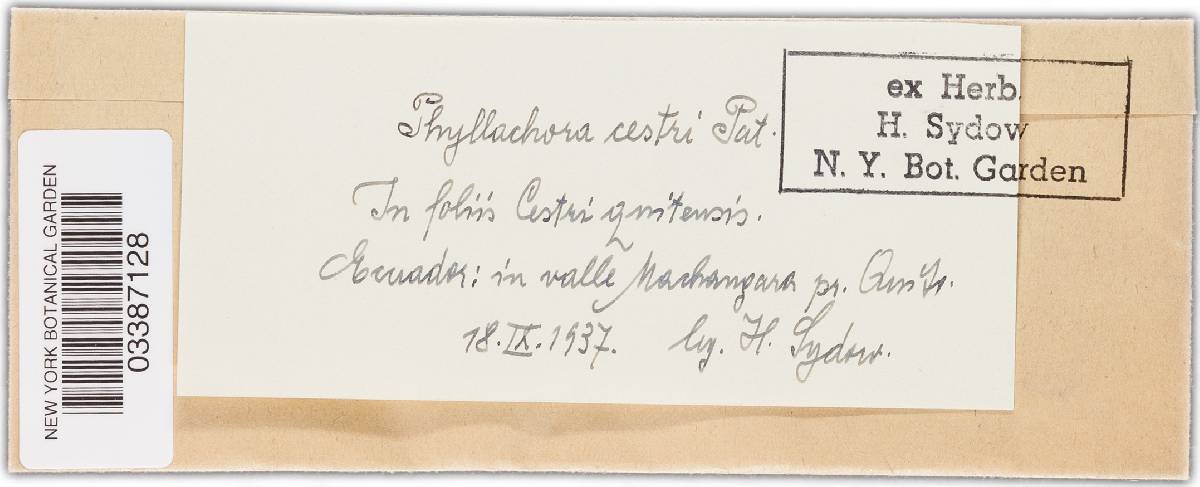 Phyllachora cestri Pat.
In foliis Cestri quitensis.
Ecuador: in valle Machangara pr. Quito.
18.IX.1937. leg. H. Sydow.
ex Herb.
H. Sydow
N. Y. Bot. Garden
NEW YORK BOTANICAL GARDEN
03387128